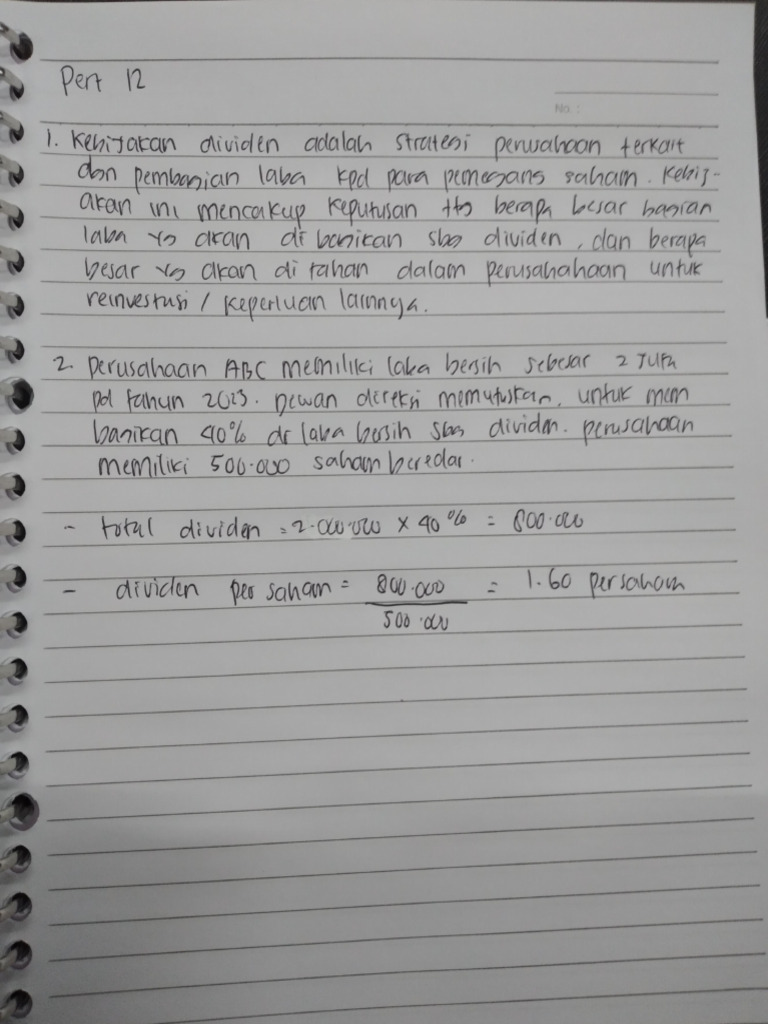 Pert 12
No :
1. Kebijakan dividen adalah strategi perusahaan terkait
dgn pembagian laba kpd para pemegang saham. Kebij-
akan ini mencakup keputusan ttg berapa besar bagian
laba yg akan di bagikan sbg dividen, dan berapa
besar yg akan di tahan dalam perusahahaan untuk
reinvestusi / keperluan lainnya.
2. perusahaan ABC memiliki laba bersih sebesar 2 juta
pd tahun 2023. Dewan direksi memutuskan, untuk mem
bagikan 40% dr laba bersih sbg dividen. perusahaan
memiliki 500.000 saham beredar.
- total dividen = 2.000.000 x 40% = 800.000
- dividen per saham = 800.000 = 1.60 persaham
500.000